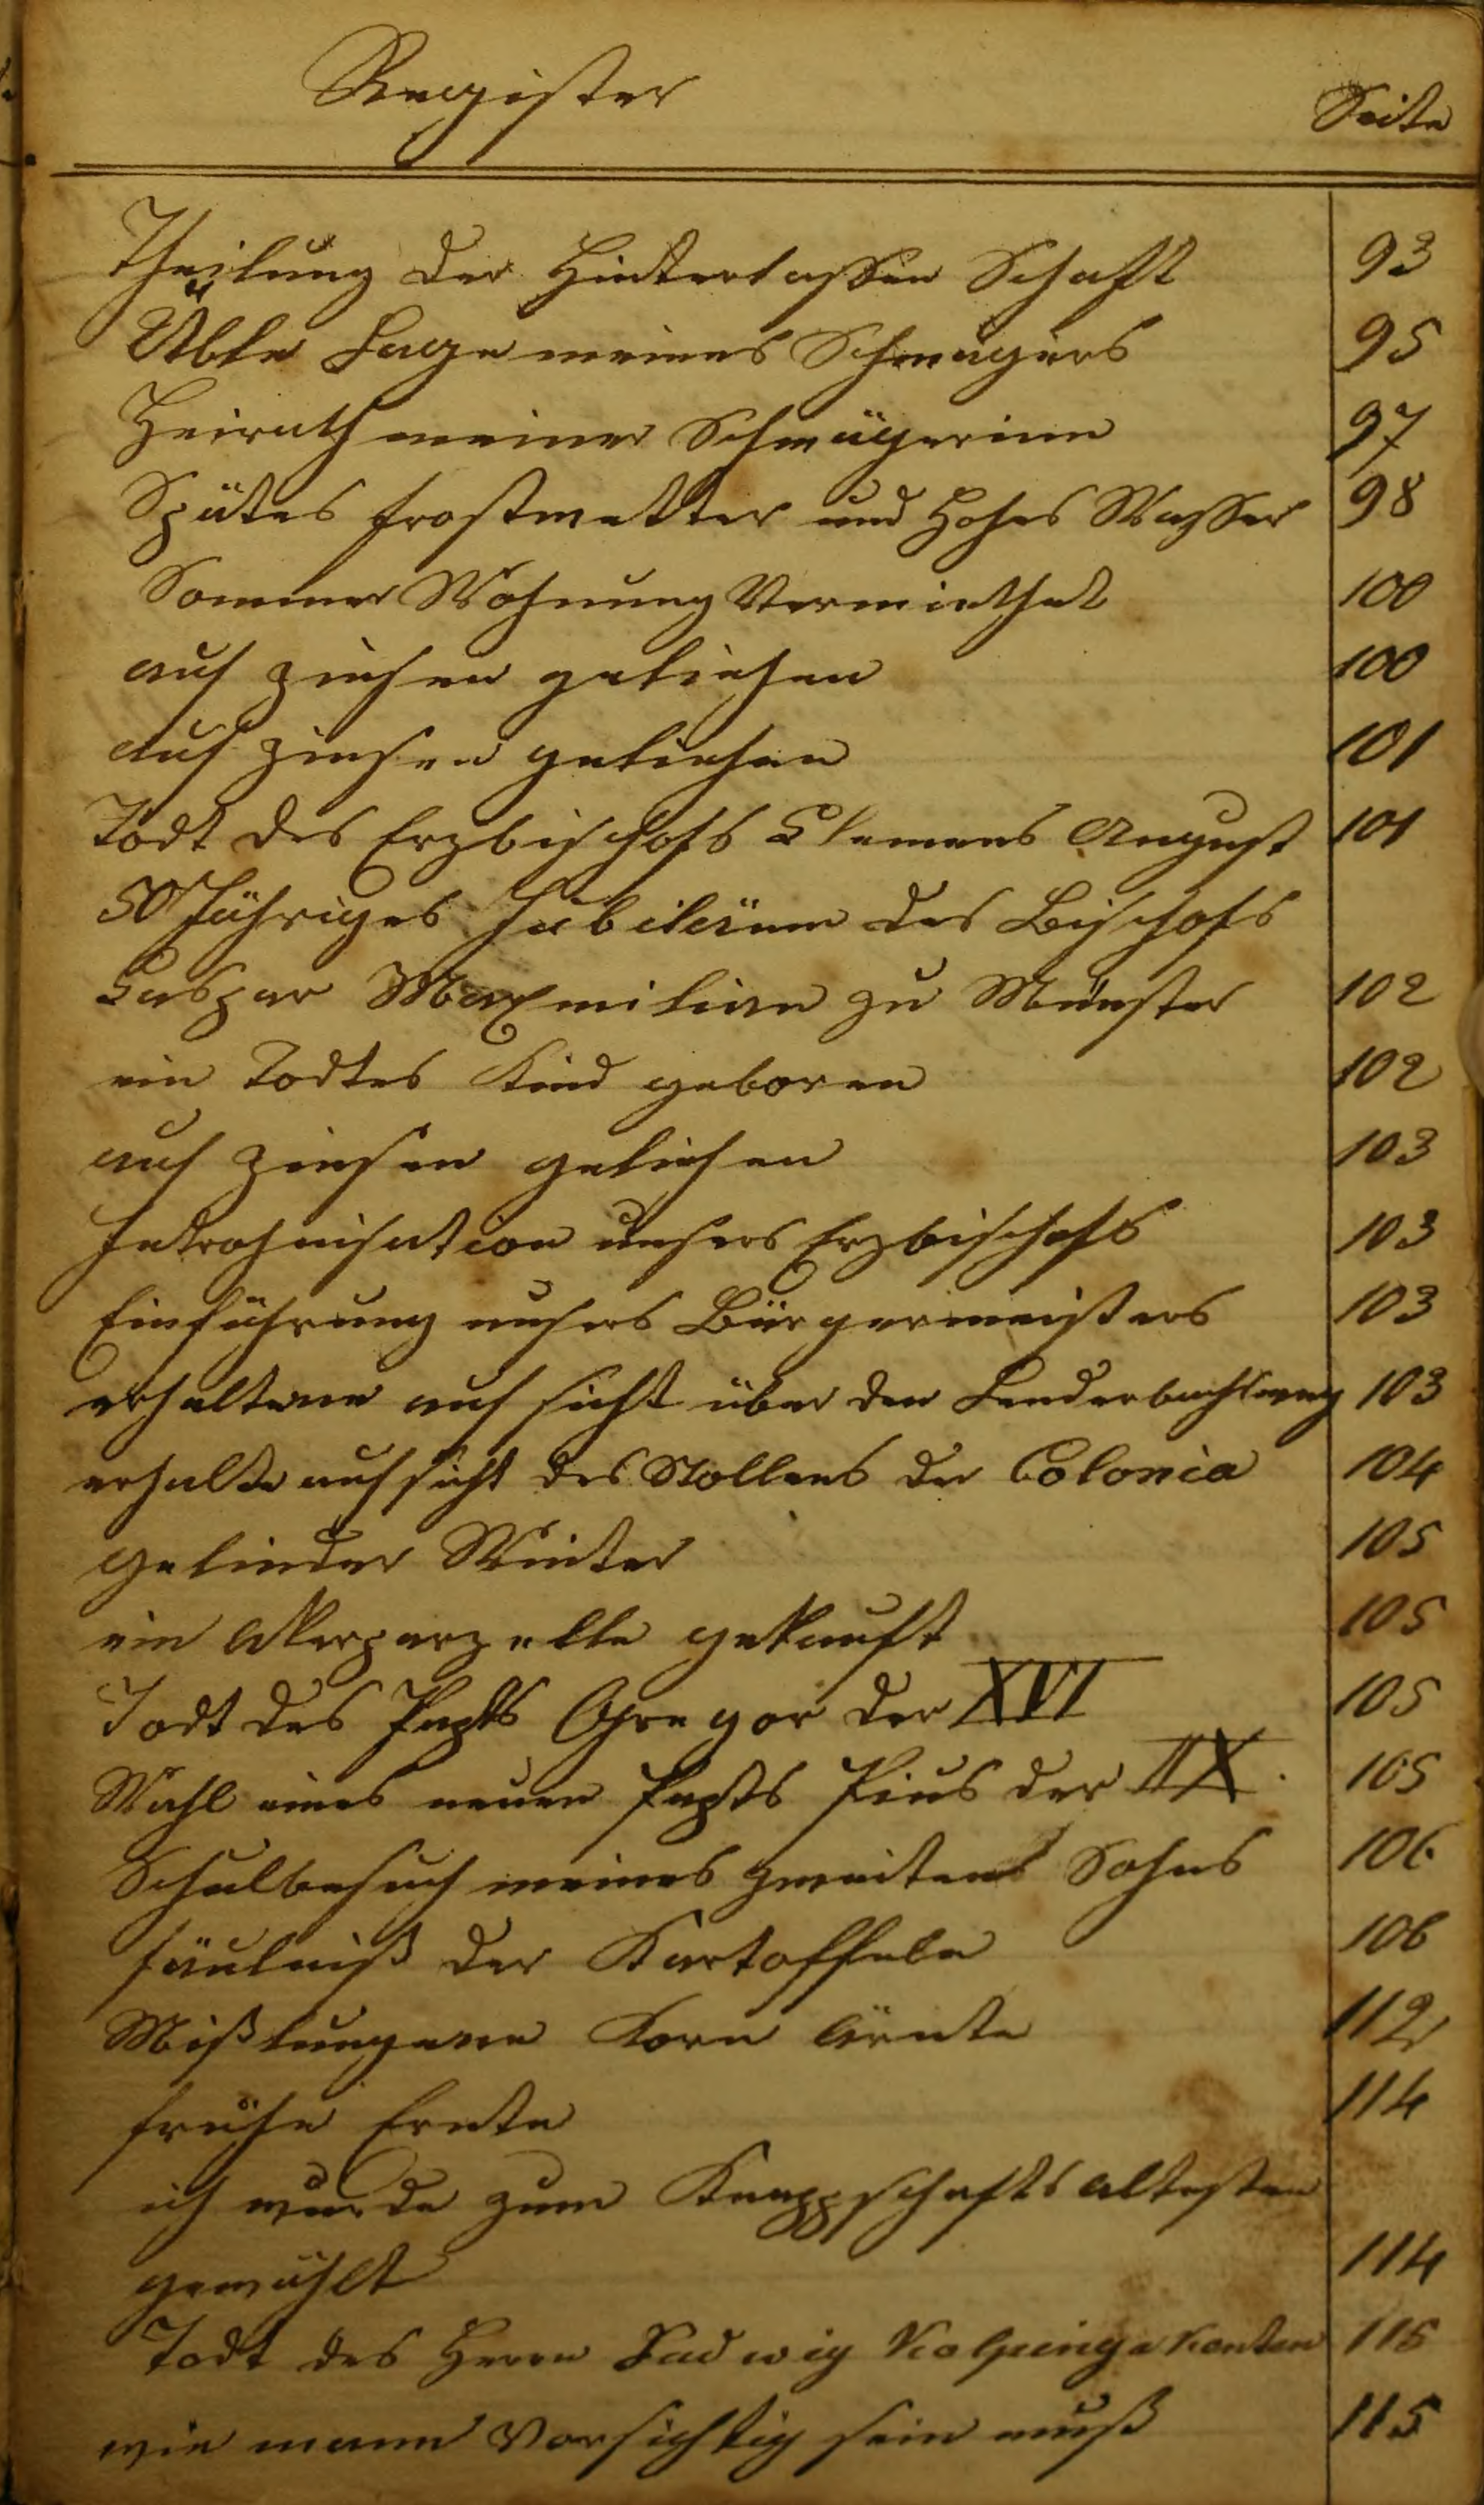 Register Seite
Theilung der Hinterlassen Schaft 93
Üble Lage meines Schwagers 95
Heirath meiner Schwägerinn 97
Spätes frostwetter und Hohes Wasser 98
Sommer Wohnung Vermiethet 100
auf zinsen geliehen 100
auf zinsen geliehen 101
Todt des Erzbischofs Clemens August 101
50 Jähriges Jubileium des Bischofs
Caspar Maxmilian zu Münster 102
ein Todtes Kind geboren 102
auf zinsen geliehen 103
Introhnisation unsers Erzbischofs 103
Einführung unsers Bürgermeisters 103
erhaltene auf sicht über den 103
erhalte auf sicht des Stollens der Colonia 104
gelinder Winter 105
ein Akerparzelle gekauft 105
Todt des Papsts Gregor der XVI 105
Wahl eines neuen Papsts Pius der IX. 105
Schulbesuch meines zweitens Sohns 106
fäulniß der Kartoffeln 106
Mißlungene Korn Ärnte 112
frühe Ernte 114
ich wurde zum Knappschafts altesten
gewählt 114
Todt des Herrn Ludwig Kolping 115
wie mann Vorsichtig sein muß 115